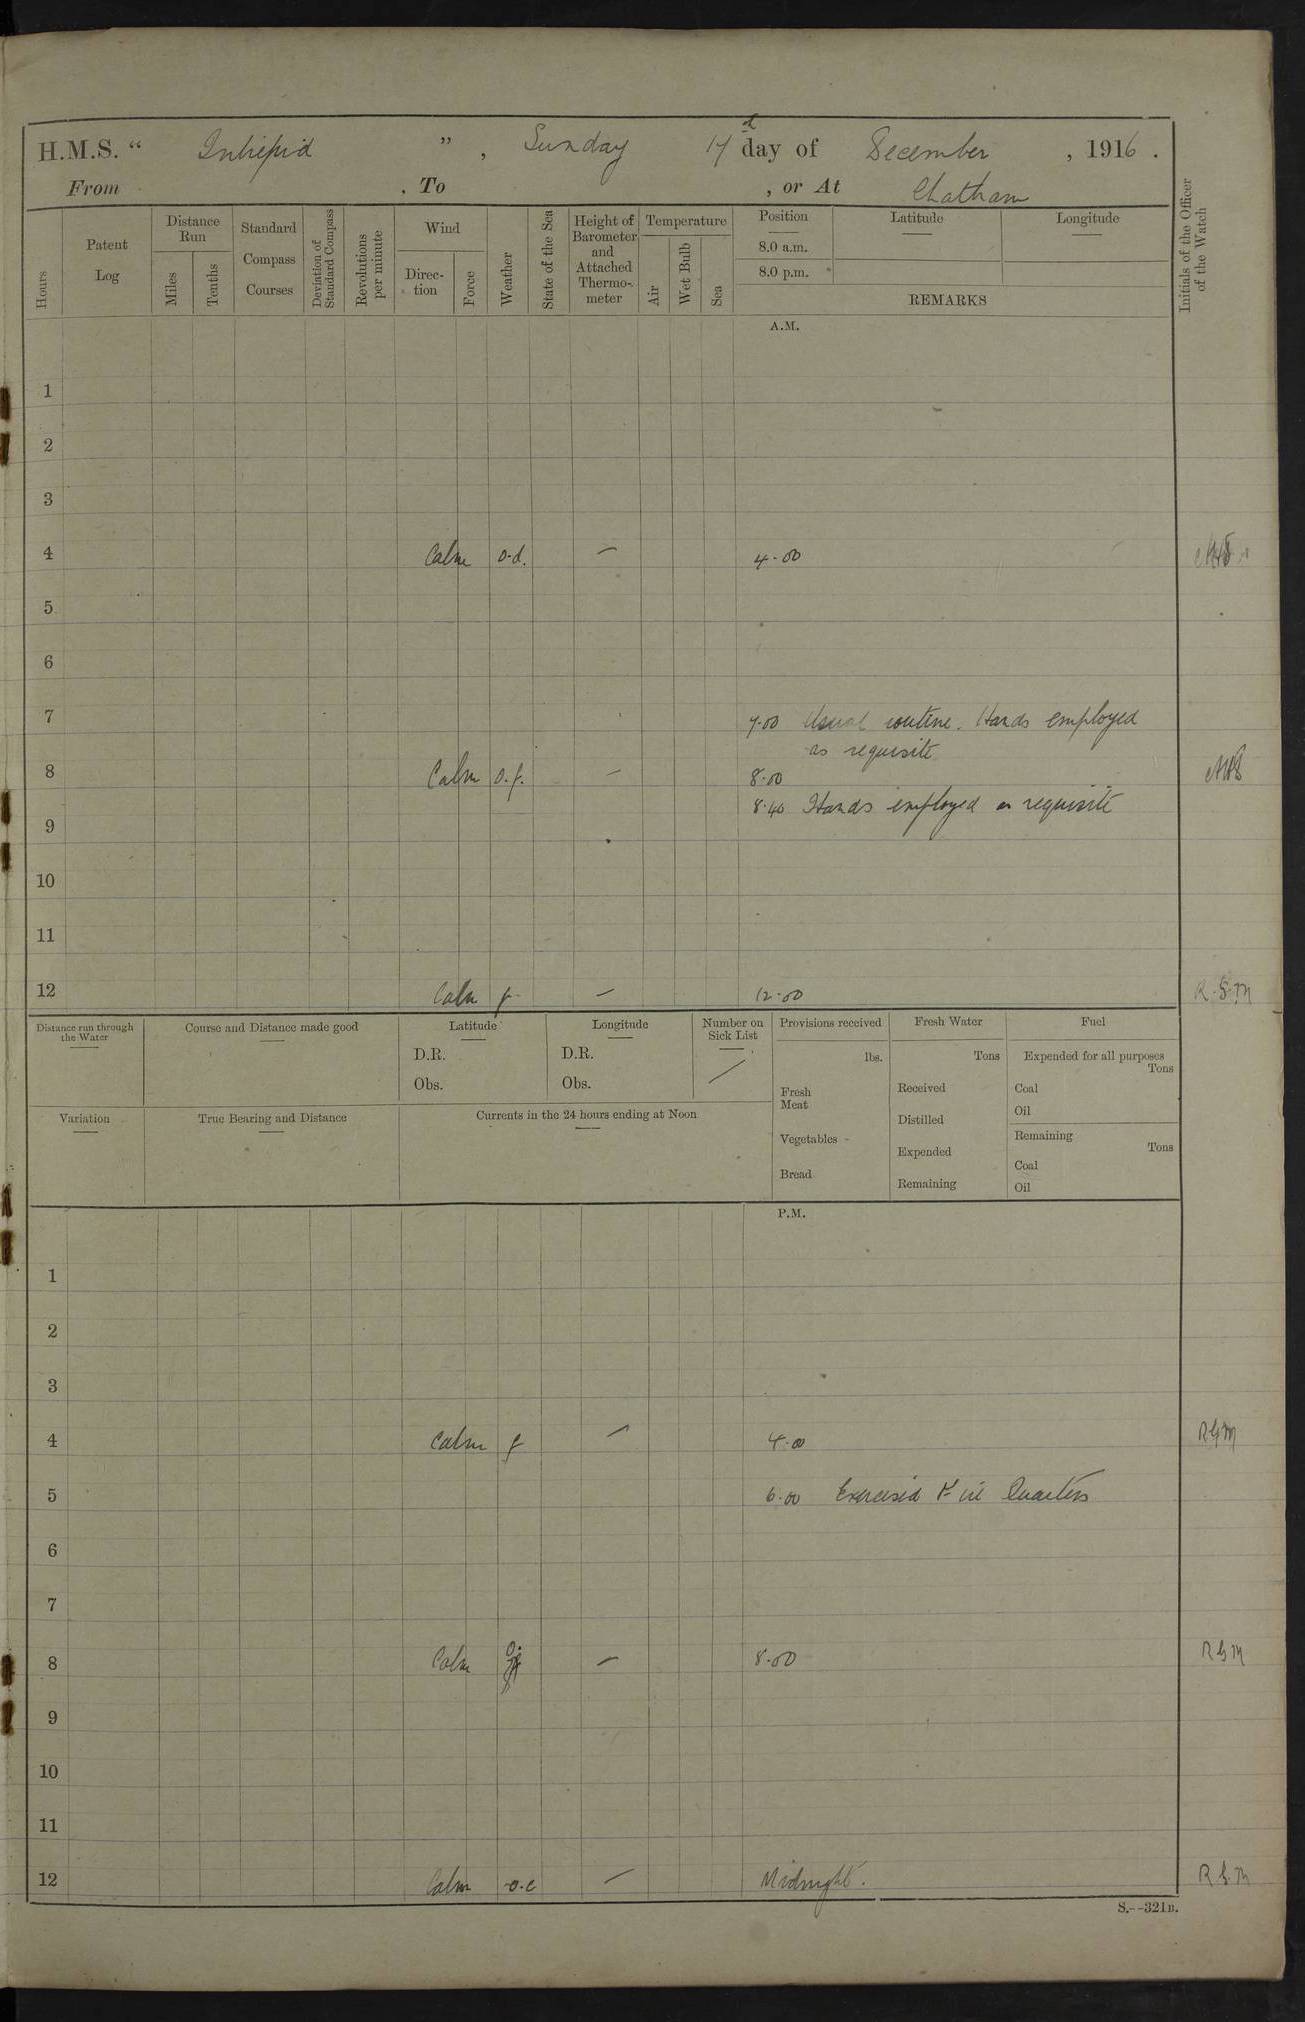 H.M.S. " Intrepid ", Sunday 17 day of December, 1916.
From , To , or At Chatham
Hours
Patent Log
Distance Run
Miles
Tenths
Standard Compass Courses
Deviation of Standard Compass
Revolutions per minute
Wind
Direction
Force
Weather
State of the Sea
Height of Barometer and Attached Thermometer
Temperature
Air
Wet Bulb
Sea
Position
8.0 a.m.
8.0 p.m.
Latitude
Longitude
REMARKS
Initials of the Officer of the Watch
A.M.
1
2
3
4 Calm o.d. — 4.00
5
6
7 7.00 Usual routine. Hands employed
as requisite
8 Calm o.f. — 8.00
8.40 Hands employed as requisite
9
10
11
12 Calm f. — 12.00 R.G.M
Distance run through the Water
Course and Distance made good
Latitude
D.R.
Obs.
Longitude
D.R.
Obs.
Number on Sick List
Provisions received
lbs.
Fresh Meat
Vegetables
Bread
Fresh Water
Tons
Received
Distilled
Expended
Remaining
Fuel
Expended for all purposes
Tons
Coal
Oil
Remaining
Tons
Coal
Oil
Variation
True Bearing and Distance
Currents in the 24 hours ending at Noon
P.M.
1
2
3
4 Calm f — 4.00 RGM
5 6.00 Exercised Quarters
6
7
8 Calm — 8.00 RGM
9
10
11
12 Calm o.c — Midnight. R.G.M
S.--321B.